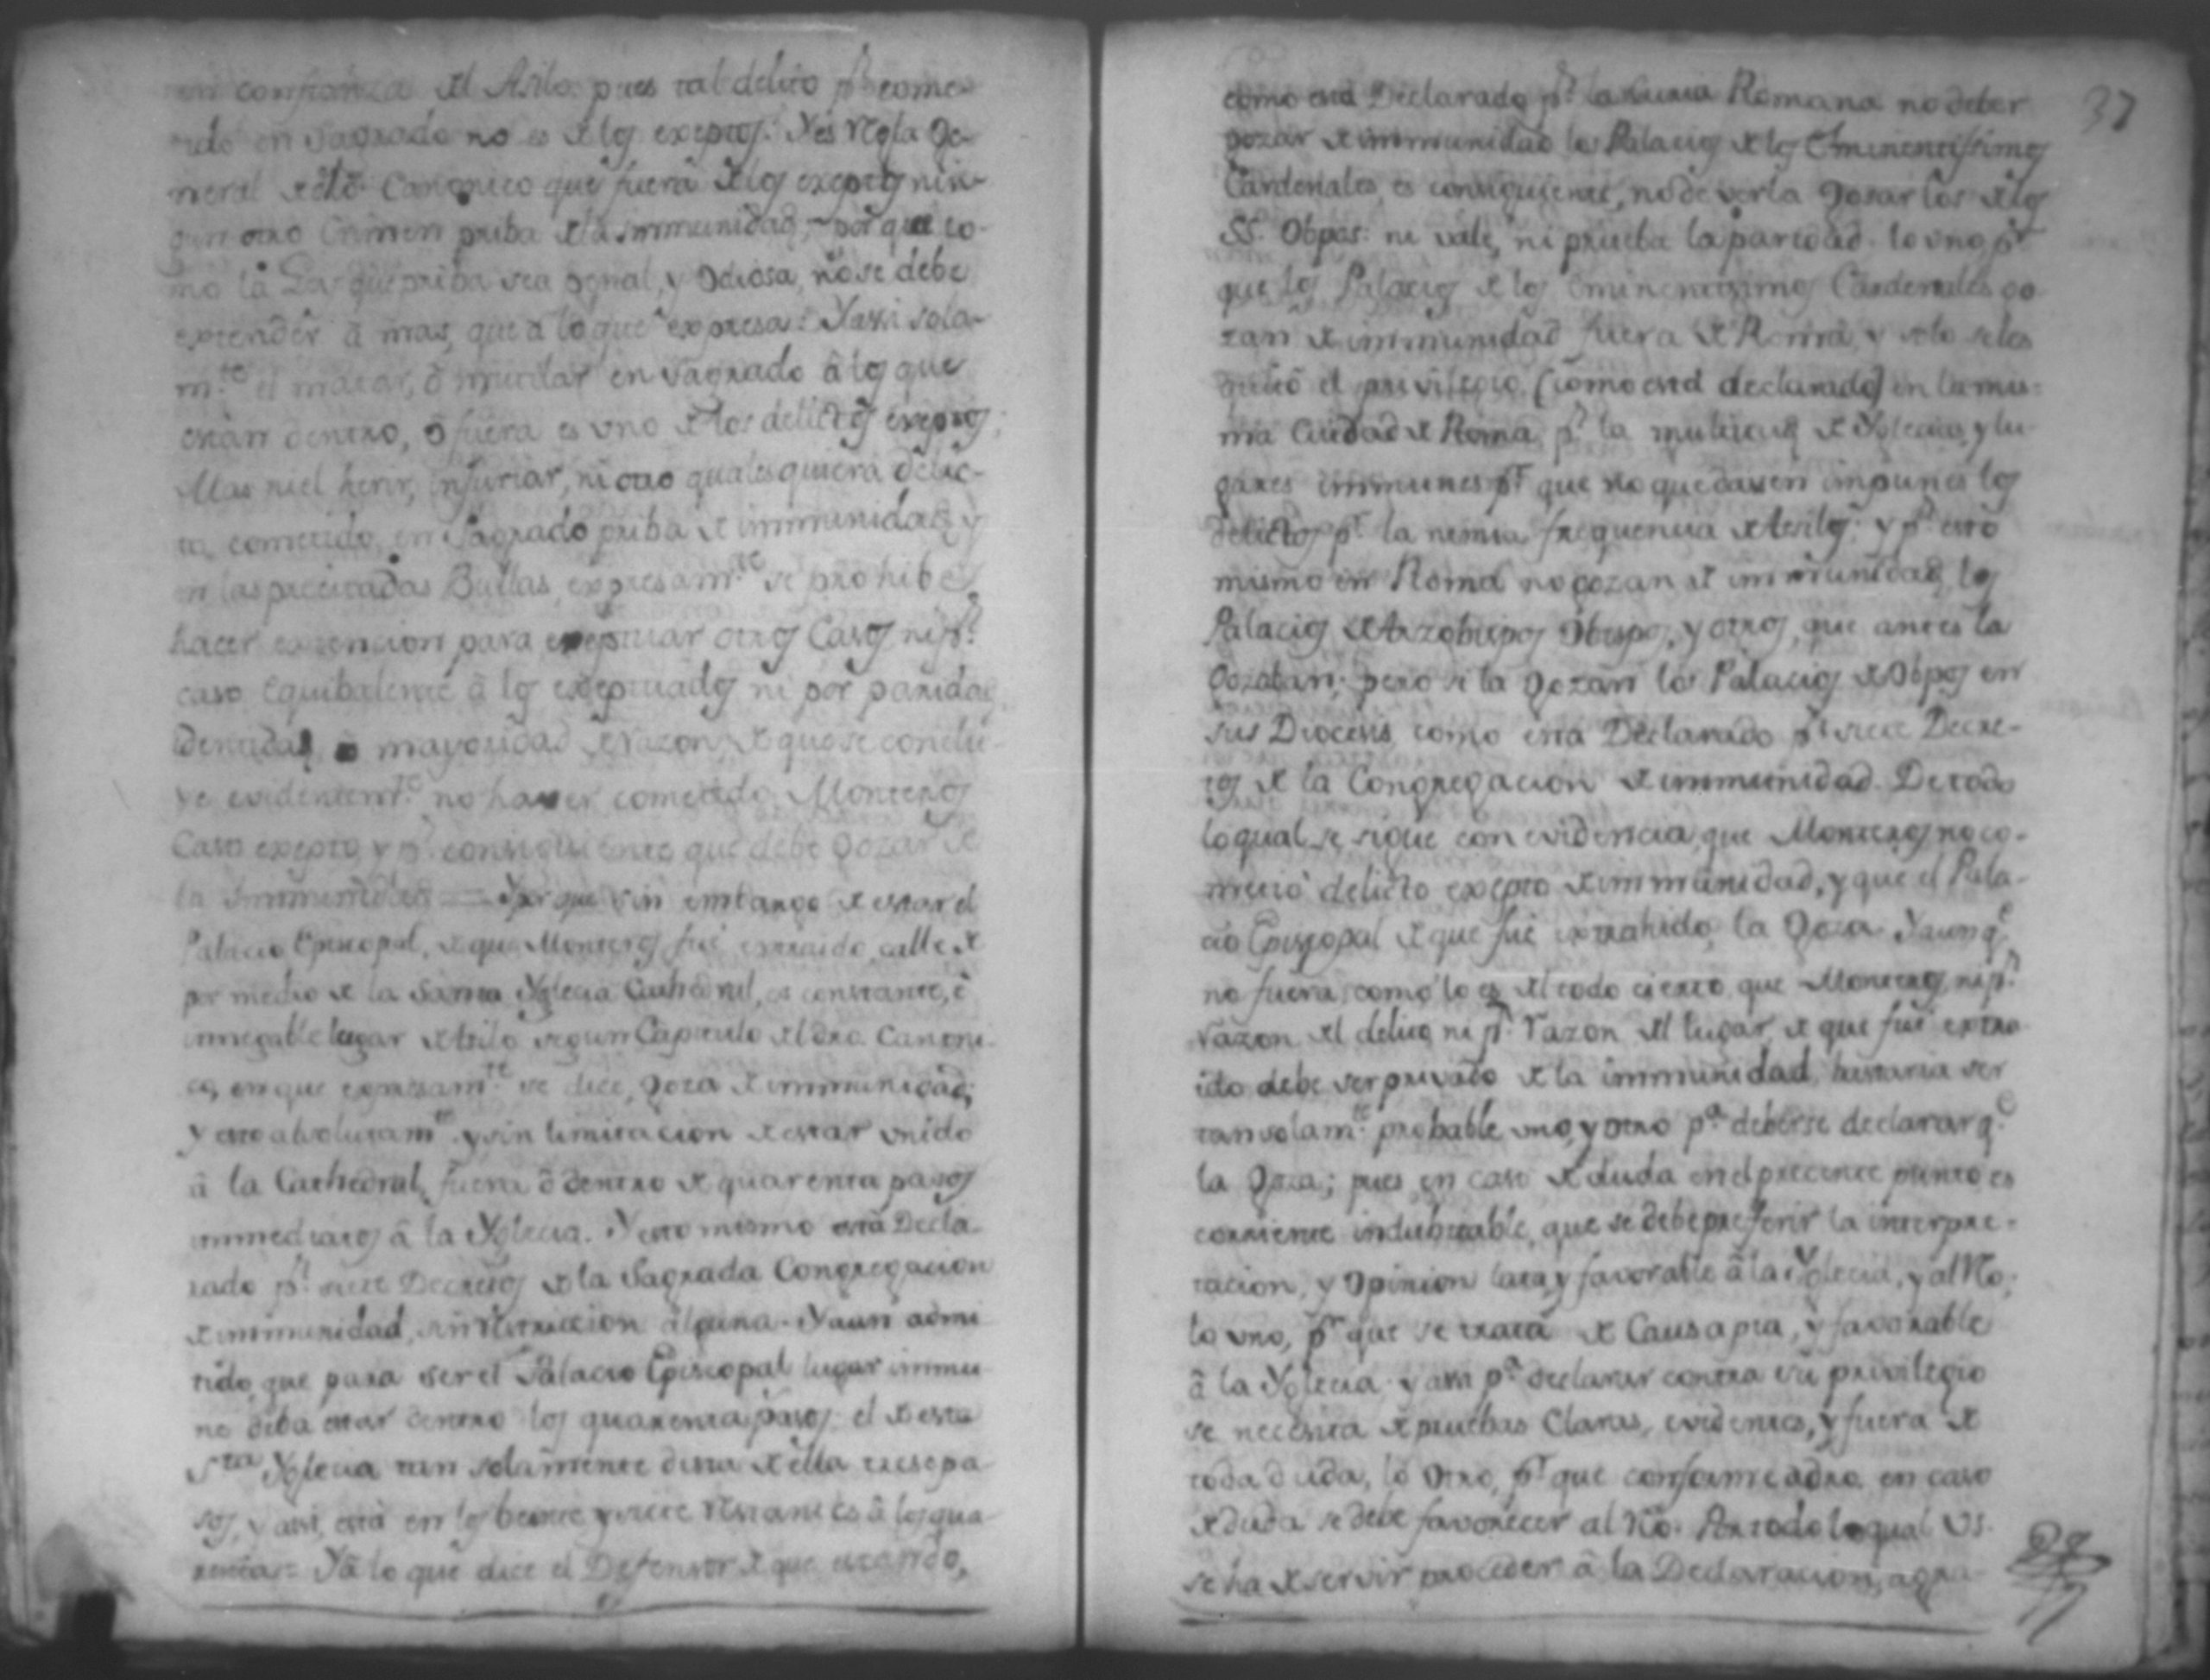 en confianza del Asilo. pues tal delito pr. come-
tido en Sagrado no es de los exeptos: Y es Regla Ge-
neral de dro. Canonico que fuera de los exeptos nin-
gun otro Crimen priba de la immunidad, porque co-
mo la Ley que priba sea penal, y Odiosa, no se debe
extender â mas, que â lo que expresa: Y assi sola-
m.te el matar, ô mutilar en sagrado â los que
estàn dentro, ô fuera es uno de los delictos exeptos;
Mas ni el herir, injuriar, ni otro qualesquiera delic-
to, cometido en Sagrado priba de immunidad, y
en las precitadas Bullas, expresam.te se prohibe
hacer extencion para exeptuar otros Casos ni pr.
caso equibalente â los exeptuados ni por paridad
identidad, ô mayoridad de razon, de que se conclu-
ye evidentem.te no haver cometido Monteros
Caso exepto, y pr. consiguiente que debe gozar de
la immunidad = Y porque sin embargo de estar el
Palacio Episcopal, de que Monteros fuè extraido, calle de
por medio de la Santa Yglecia Cathedral, es constante, è
innegable lugar de Asilo segun Capitulo del dro. Canoni-
co, en que expresam.te se dice, goza de immunidad;
y esto absolutam.te y sin limitacion de estar unido
â la Cathedral, fuera ô dentro de quarenta pasos
immediatos â la Yglecia. Y esto mismo està Decla-
rado pr. siete Decretos de la Sagrada Congregacion
de immunidad, sin restriccion alguna. Y aun admi-
tido, que para ser el Palacio Episcopal lugar immu-
ne deba estar dentro los quarenta pasos; el de esta
S.ta Yglecia tan solamente dista de ella trese pa-
sos, y assi, està en los beinte y siete restantes â los qua-
renta = Y â lo que dice el Defensor de que estando,
37
como està Declarado pr. la Curia Romana no deber
gozar de immunidad los Palacios de los Eminentissimos
Cardenales, es consiguiente, no deverla gosar los de los
SS. Obpos: ni vale, ni prueba la paridad. lo uno, pr.
que los Palacios de los Eminentissimos Cardenales go-
zan de immunidad fuera de Roma, y solo se les
quitò el privilegio (como està declarado) en la mis-
ma Ciudad de Roma, pr. la multitud de Yglecias, y lu-
gares immunes pr. que no quedassen impunes los
delictos pr. la nimia frequencia de Asilos: y pr. esto
mismo en Roma no gozan de immunidad, los
Palacios de Arzobispos Obispos, y otros, que antes la
gozaban; pero si la gozan los Palacios de Obpos en
sus Diocesis, como està Declarado pr. siete Decre-
tos de la Congregacion de immunidad. De todo
lo qual se sigue con evidencia, que Monteros no co-
metiò delicto exepto de immunidad, y que el Pala-
cio Episcopal de que fuè extrahido, la Goza. Y aunq.e
no fuera, como lo es del todo cierto que Monteros, ni pr.
razon del delito ni pr. razon del lugar, de que fuè extra-
ido debe ser privado de la immunidad, bastaria ser
tan solam.te probable uno, y otro pa. deberse declarar q.e
la Goza; pues en caso de duda en el precente punto es
corriente indubitable, que se debe preferir la interpre-
tacion, y Opinion lata, y favorable â la Yglecia, y al Reo;
lo uno, pr. que se trata de Causa pia, y favorable
â la Yglecia y assi pa. declarar contra su privilegio
se necesita de pruebas Claras, evidentes, y fuera de
toda duda, lo Otro, pr. que conforme a dro. en caso
de duda se debe favorecer al Reo. Por todo lo qual VS.
se ha de servir proceder â la Declaracion, agra-